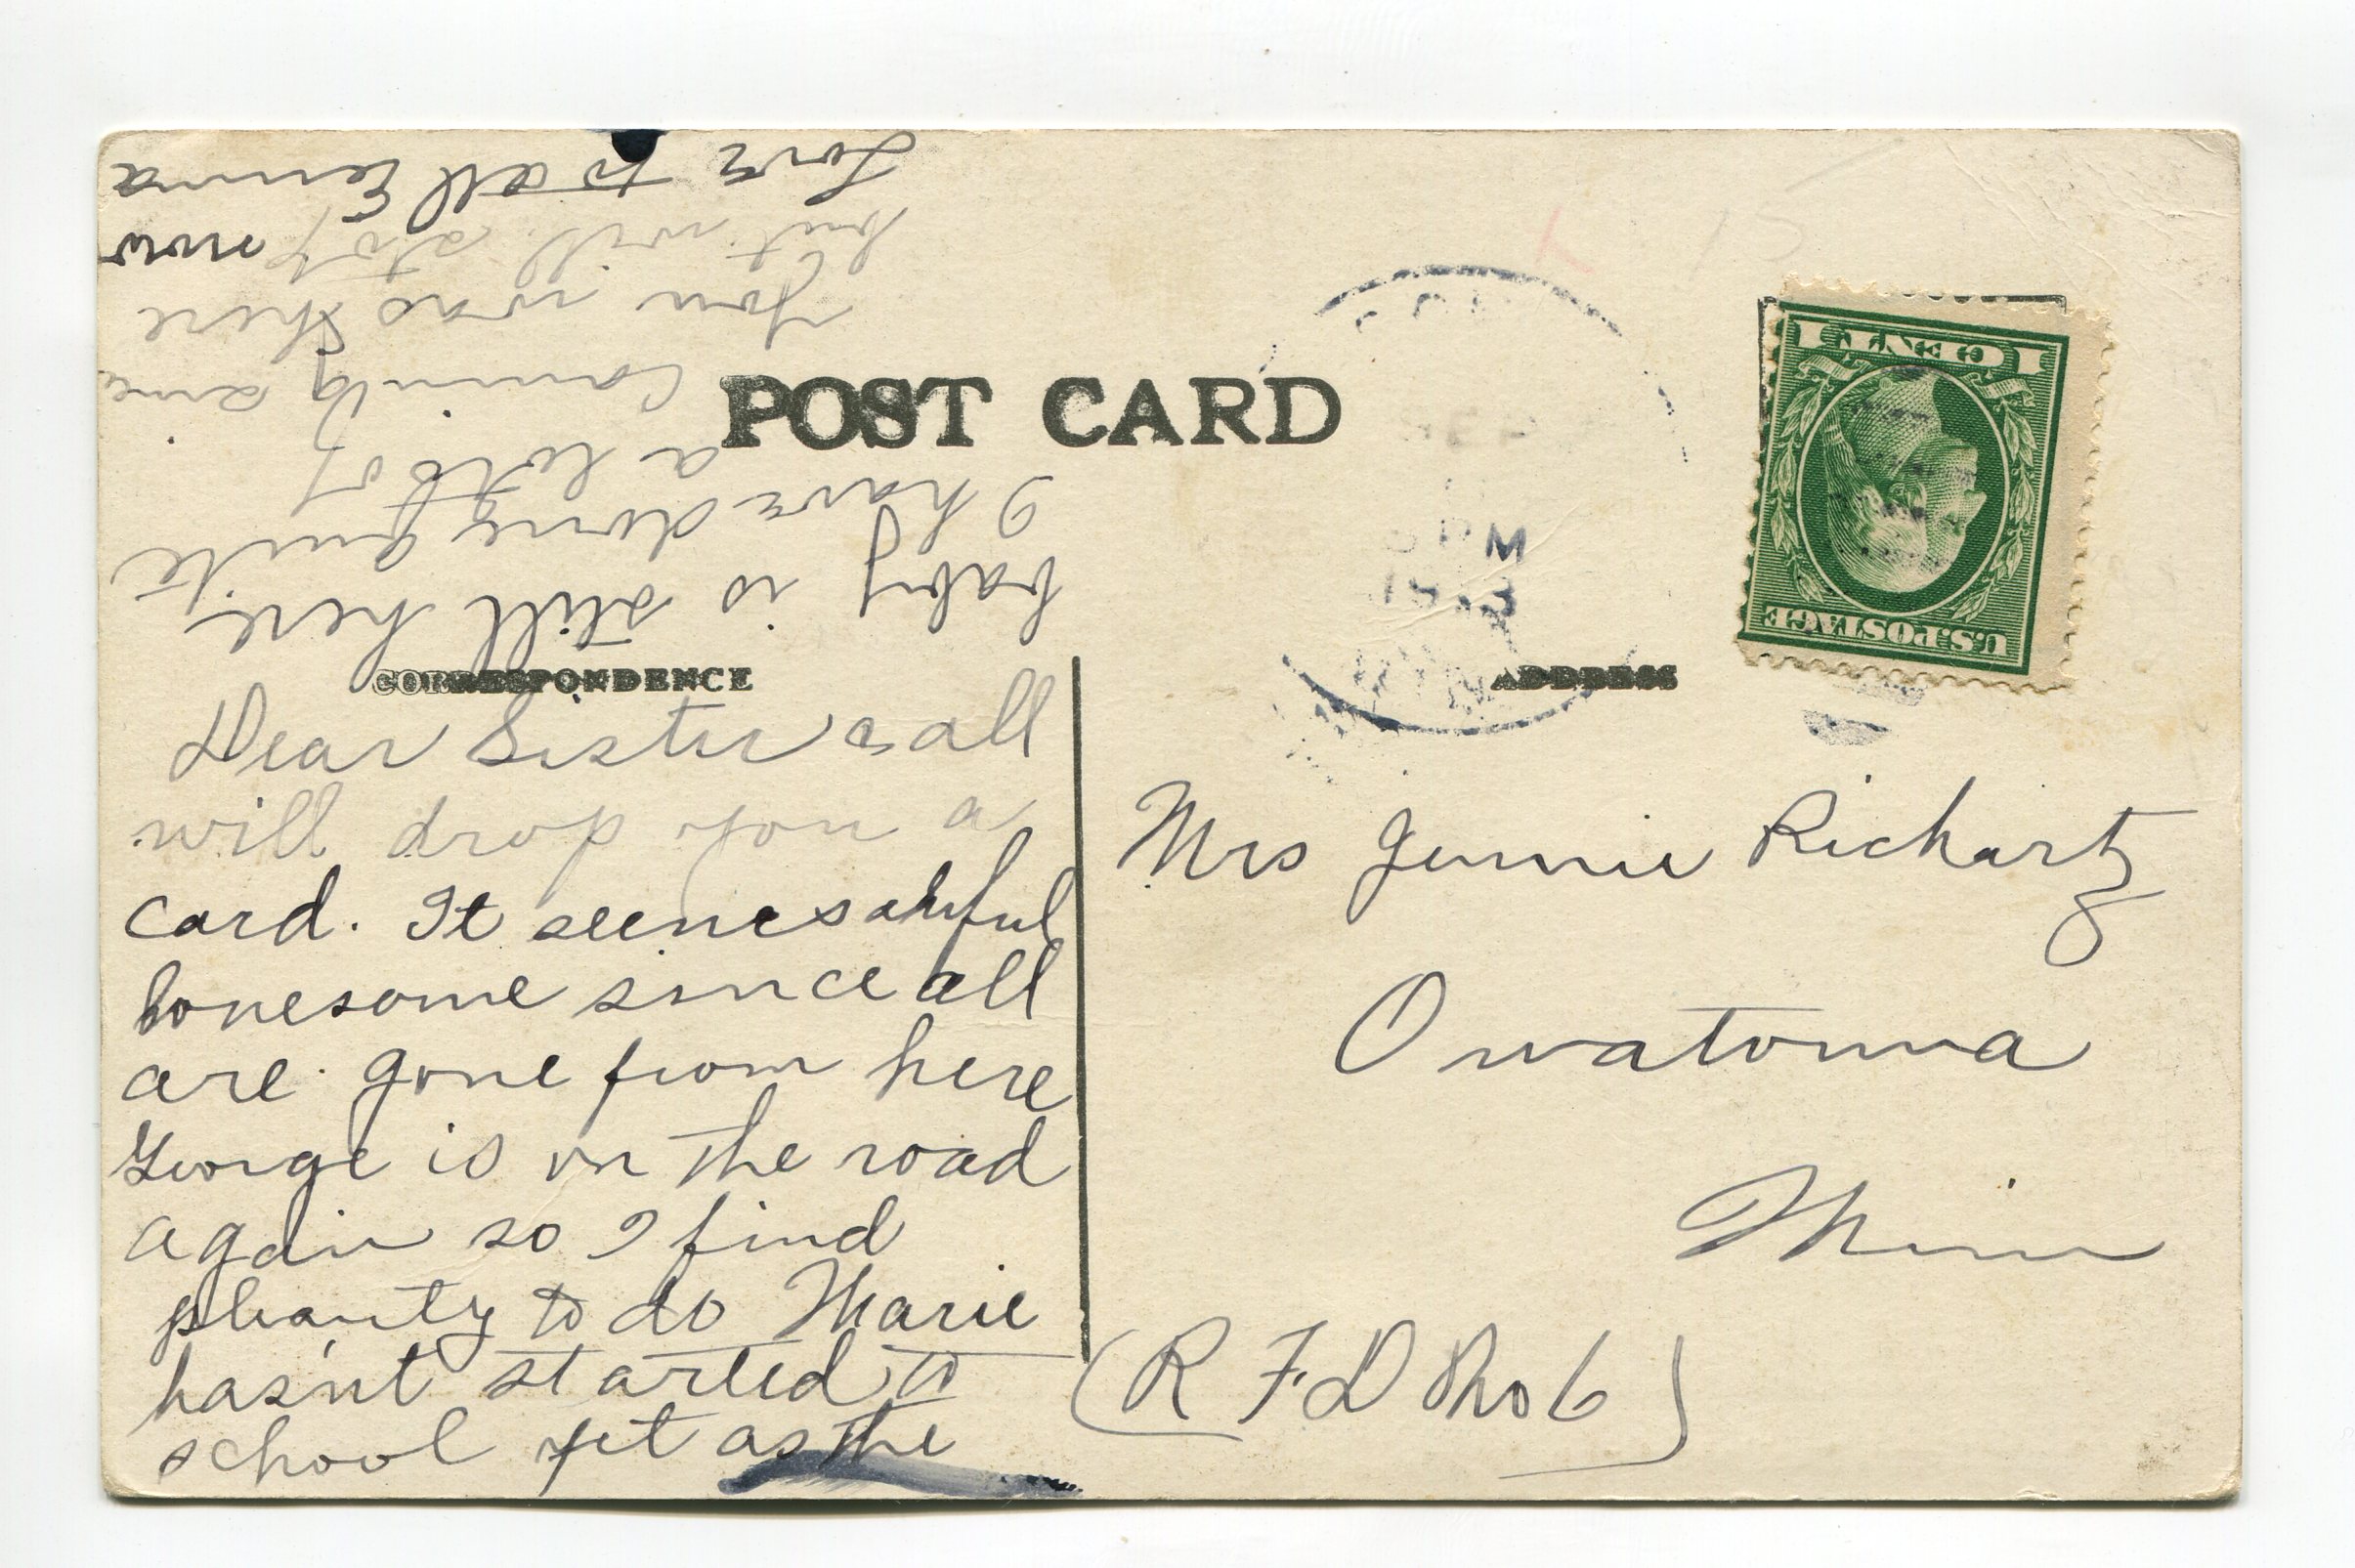 POST CARD
CORRESPONDENCE
ADDRESS
Dear Sister & all
will drop you a
card. It seems awful
lonesome since all
are gone from here
George is on the road
again so I find
pleanty to do Marie
hasn't started to
school yet as the
baby is still here,
I have done quite
a lots of
canning since
you was here
but will stop now
Love to all Emma
Mrs Jennie Richartz
Owatonna
Minn
(R F D No 6)
U.S. POSTAGE
1 CENT 1
PM